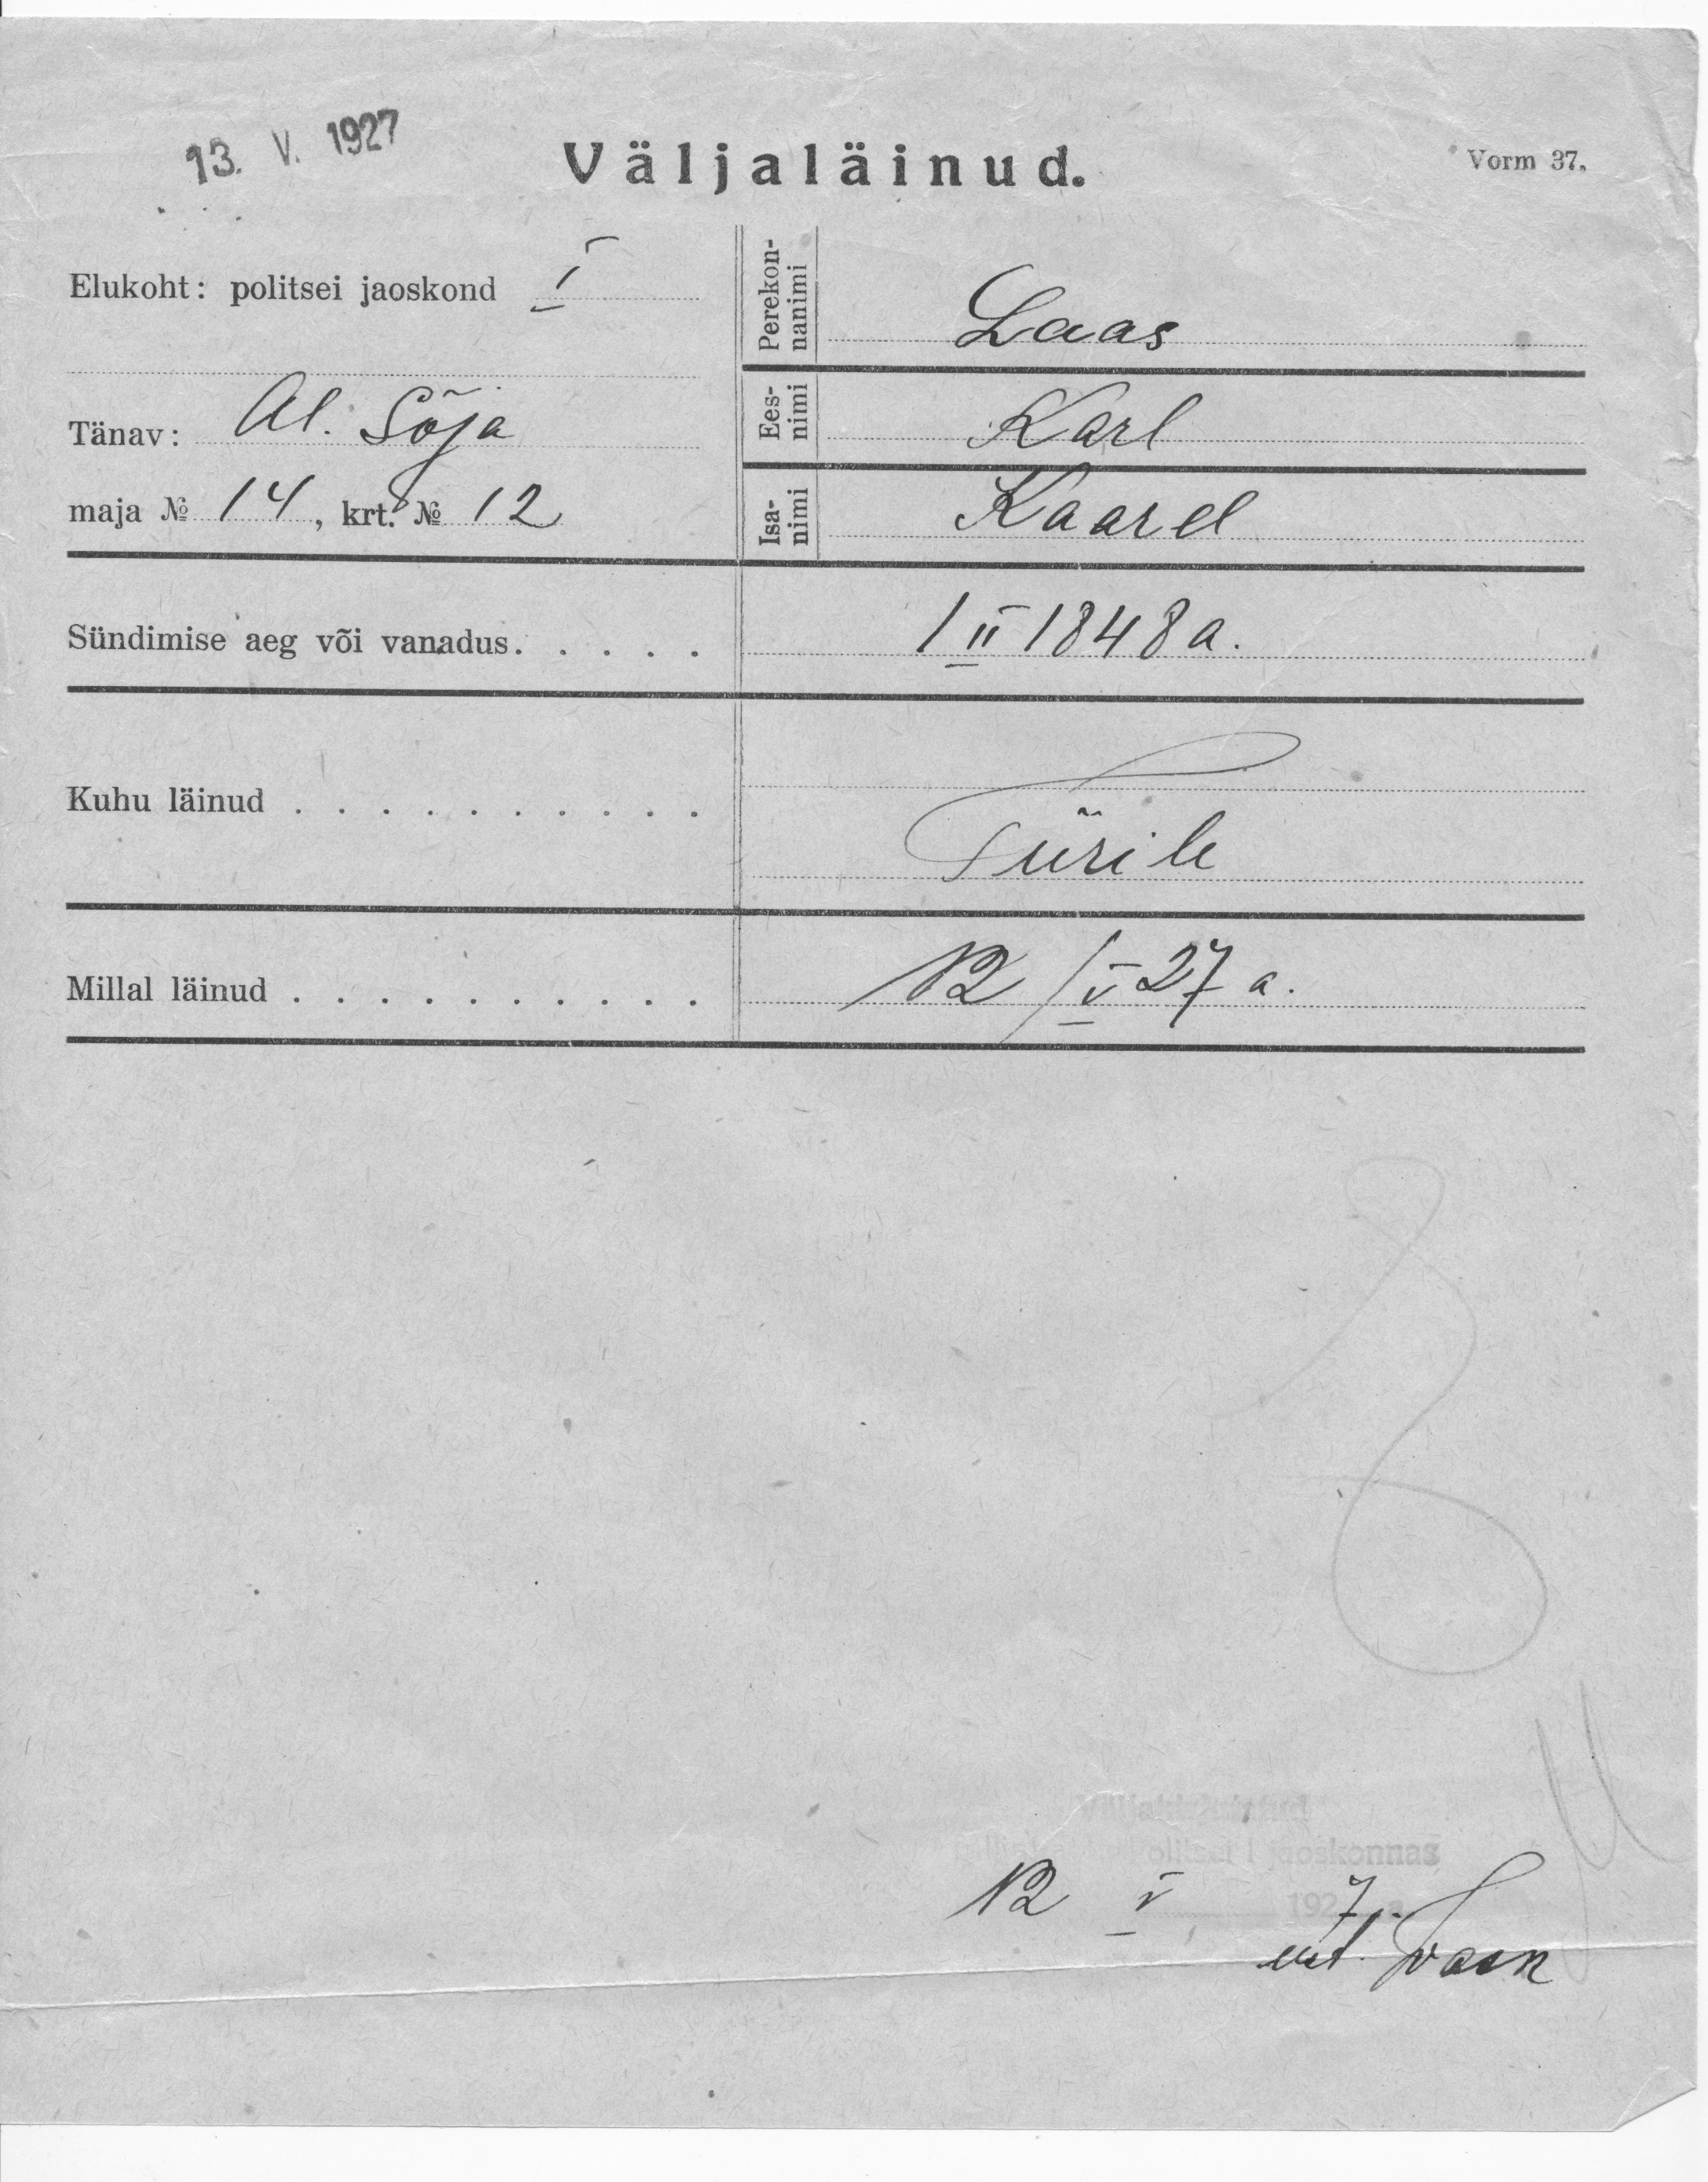 13. V. 1927
Väljaläinud.
Vorm 37.
Elukoht: politsei jaoskond I
Tänav: Al. Sõja
maja № 14, krt. № 12
Perekon-
nanimi
Laas
Ees-
nimi
Karl
Isa-
nimi
Kaarel
Sündimise aeg või vanadus. . . . . . 1 II 1848 a.
Kuhu läinud . . . . . . . . . . Türile
Millal läinud . . . . . . . . . . 12/V 27 a.
politsei I jaoskonnas
12 V 1927 a.